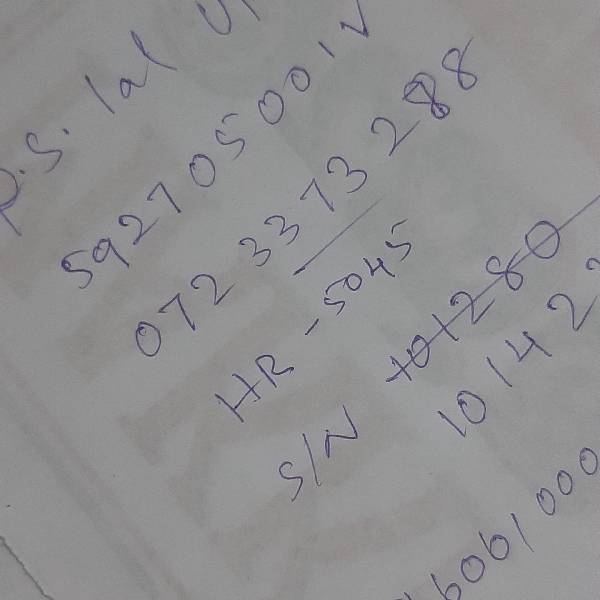 P.S. lal
592705001V
072 3373 288
HR - 5045
S/N 101280
10142
6061000